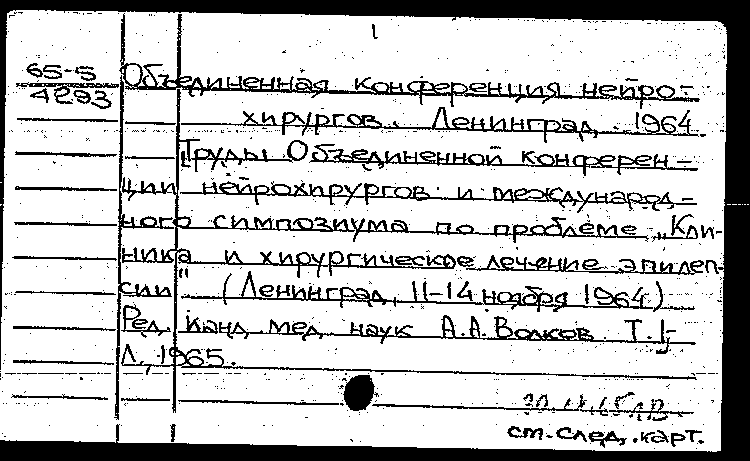 1
65-5
4293
Объединенная конференция нейро-
хирургов. Ленинград, 1964.
[Труды Объединенной конферен-
ции нейрохирургов и международ-
ного симпозиума по проблеме „Кли-
ника и хирургическое лечение эпилеп-
сии" (Ленинград, 11-14 ноября 1964)
Ред. канд. мед. наук А.А. Волков Т. I-
Л., 1965.
см. след. карт.